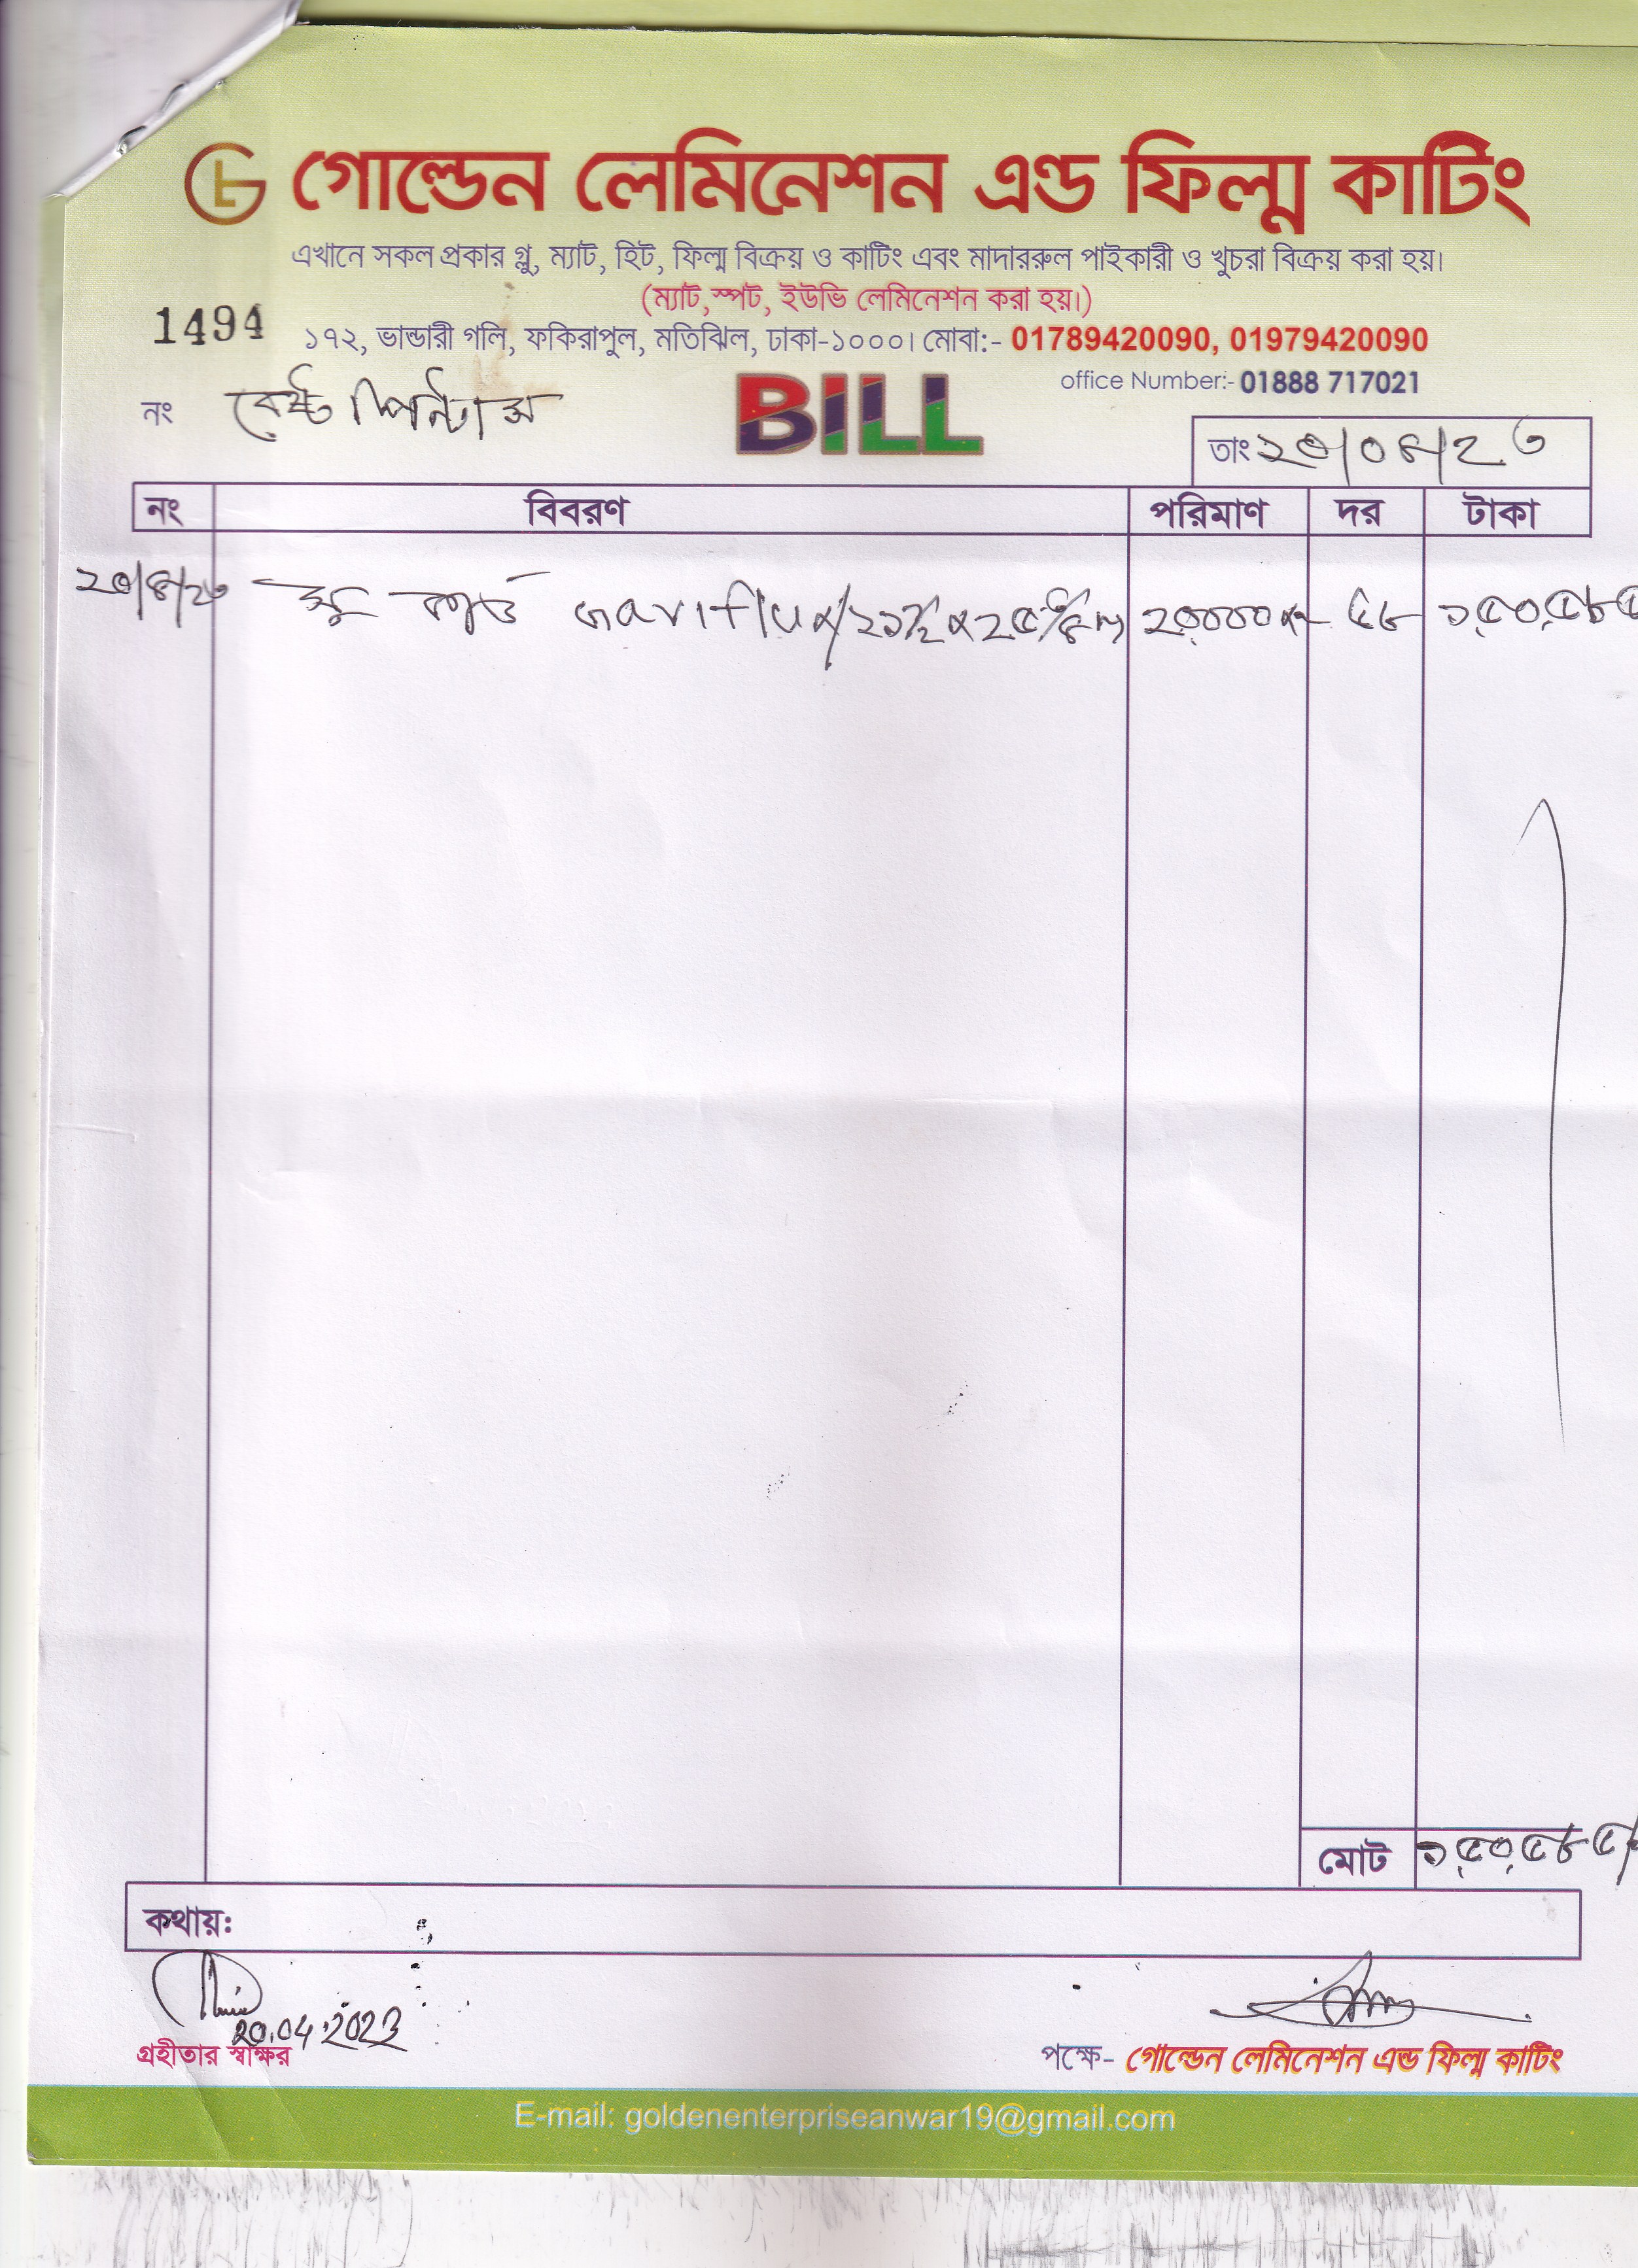 গোল্ডেন লেমিনেশন এণ্ড ফিল্ম কাটিং
এখানে সকল প্রকার গ্লু, ম্যাট, হিট, ফিল্ম বিক্রয় ও কাটিং এবং মাদাররুল পাইকারী ও খুচরা বিক্রয় করা হয়।
(ম্যাট,স্পট, ইউভি লেমিনেশন করা হয়।)
1494
১৭২, ভান্ডারী গলি, ফকিরাপুল, মতিঝিল, ঢাকা-১০০০। মোবা:- 01789420090, 01979420090
office Number:- 01888 717021
নং বেষ্ট প্রিন্টার্স
BILL
তাং ২০/০৪/২৩
নং বিবরণ পরিমাণ দর টাকা
কার্ড
মোট ১,৫০,৫৮৫/
কথায়:
20.04.2023
গ্রহীতার স্বাক্ষর
পক্ষে- গোল্ডেন লেমিনেশন এন্ড ফিল্ম কাটিং
E-mail: goldenenterpriseanwar19@gmail.com